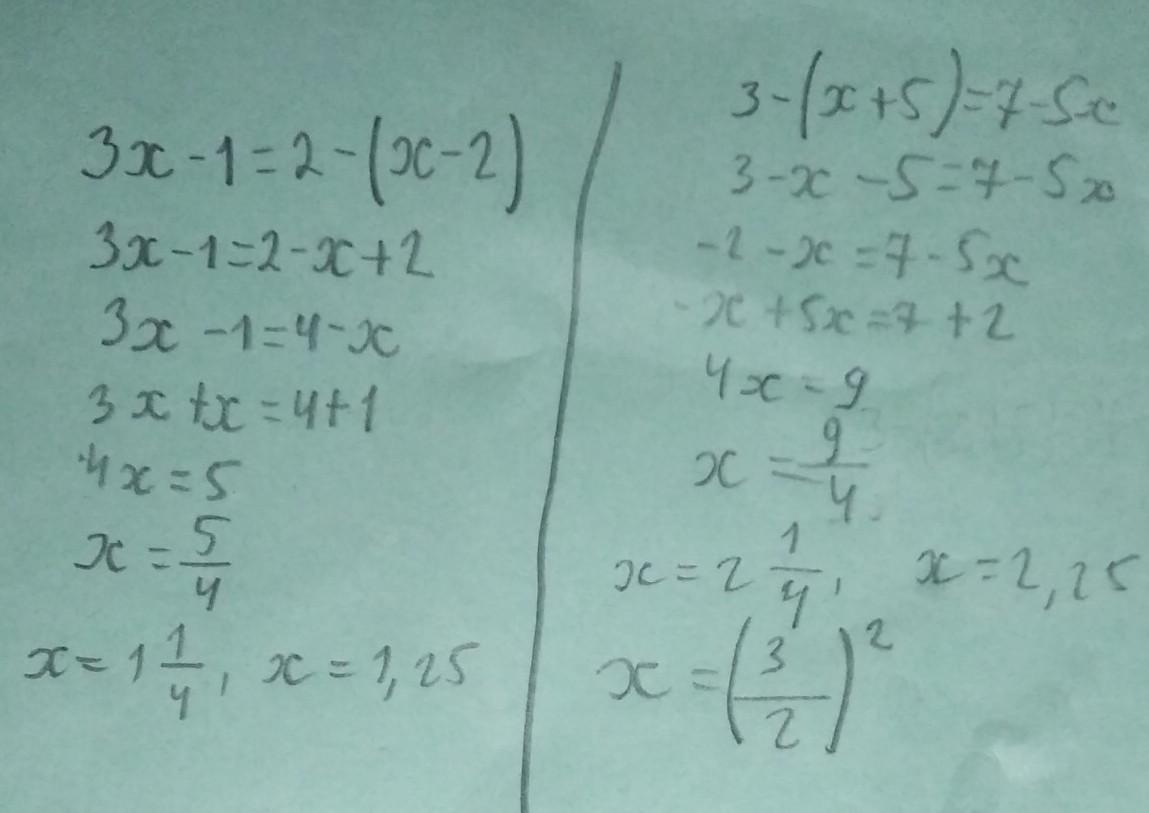 3x-1=2-(x-2)
3x-1=2-x+2
3x-1=4-x
3x+x=4+1
4x=5
x=5/4
x=1 1/4, x=1,25
3-(x+5)=7-5x
3-x-5=7-5x
-2-x=7-5x
-x+5x=7+2
4x=9
x=9/4
x=2 1/4, x=2,25
x=(3/2)²